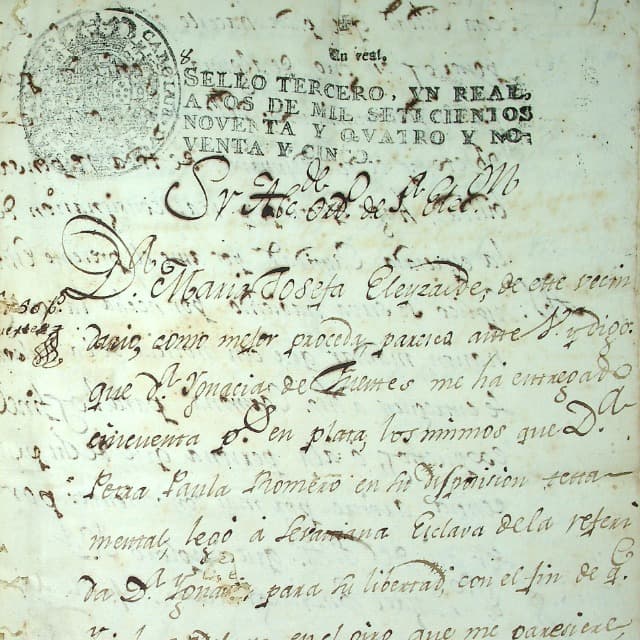 Un real.
SELLO TERCERO, VN REAL,
AÑOS DE MIL SETECIENTOS
NOVENTA Y QVATRO Y NO-
VENTA Y CINCO.
Sr Alce. de
Da. Maria Josefa Eleyzalde, de este vecin
dario, como mejor proceda paresca ante V. y digo:
que Da. Ygnacia de Fuentes me ha entregado
cincuenta ps. en plata, los mismos que Da.
Petra Paula Romero en su disposicion testa-
mental, legó á Esclava de la referi
da Da. Ygnacia, para su libertad, con el fin de q.
en el giro que me pareciere